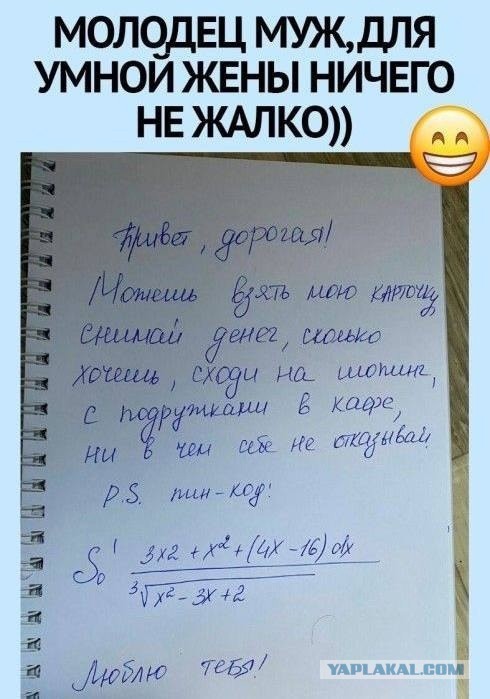 МОЛОДЕЦ МУЖ, ДЛЯ
УМНОЙ ЖЕНЫ НИЧЕГО
НЕ ЖАЛКО))
Привет, дорогая!
Можешь взять мою карточку
снимай денег, сколько
хочешь, сходи на шопинг,
с подружками в кафе,
ни в чем себе не отказывай
P.S. пин-код:
∫₀¹ (3x2 + x² + (4x - 16) dx) / ∛(x² - 3x + 2)
Люблю тебя!
YAPLAKAL.COM